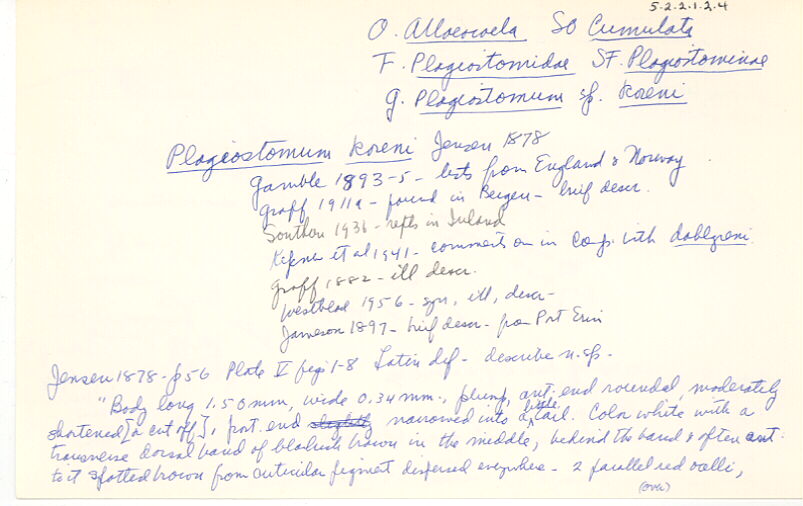 5-2-2-1-2-4
O. Alloeocoela SO Cumulata
F. Plagiostomidae SF. Plagiostominae
g. Plagiostomum sp. koreni
Plagiostomum koreni Jensen 1878
Gamble 1893-5 - lists from England & Norway
Graff 1911a - found in Bergen - brief descr.
Southern 1936 - repts in Ireland
Kepner et al 1941 - comments on in comp. with dahlgreni.
Graff 1882 - ill descr.
Westblad 1956 - syn, ill, descr-
Jameson 1897 - brief descr - from Port Erin
Jensen 1878 - p56 Plate V figs 1-8 Latin def - describe n.sp -
"Body long 1.50mm, wide 0.34 mm., plump, ant. end rounded, moderately
shortened [a cut off], post. end slightly narrowed into a little tail. Color white with a
transverse dorsal band of blackish brown in the middle, behind the band & often ant.
to it spotted brown from cuticular pigment dispersed everywhere - 2 parallel red ocelli,
(over)